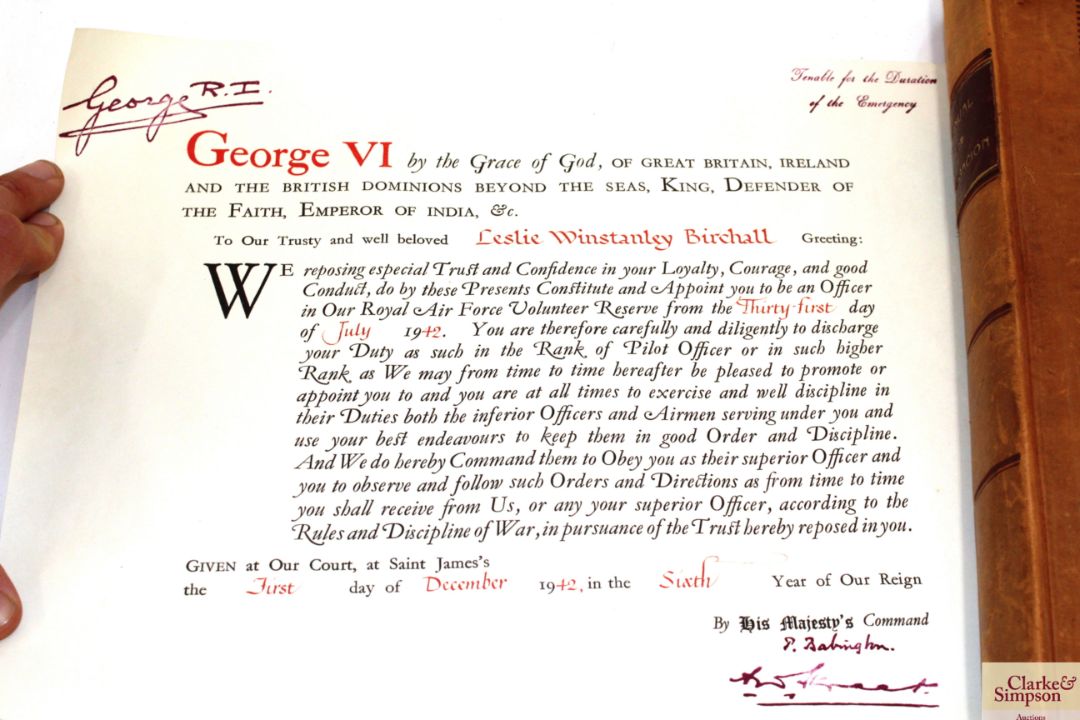 George R.I.
Tenable for the Duration
of the Emergency
George VI by the Grace of God, OF GREAT BRITAIN, IRELAND
AND THE BRITISH DOMINIONS BEYOND THE SEAS, KING, DEFENDER OF
THE FAITH, EMPEROR OF INDIA, &c.
To Our Trusty and well beloved Leslie Winstanley Birchall Greeting:
WE reposing especial Trust and Confidence in your Loyalty, Courage, and good
Conduct, do by these Presents Constitute and Appoint you to be an Officer
in Our Royal Air Force Volunteer Reserve from the Thirty-first day
of July 1942. You are therefore carefully and diligently to discharge
your Duty as such in the Rank of Pilot Officer or in such higher
Rank as We may from time to time hereafter be pleased to promote or
appoint you to and you are at all times to exercise and well discipline in
their Duties both the inferior Officers and Airmen serving under you and
use your best endeavours to keep them in good Order and Discipline.
And We do hereby Command them to Obey you as their superior Officer and
you to observe and follow such Orders and Directions as from time to time
you shall receive from Us, or any your superior Officer, according to the
Rules and Discipline of War, in pursuance of the Trust hereby reposed in you.
GIVEN at Our Court, at Saint James's
the First day of December 1942, in the Sixth Year of Our Reign
By His Majesty's Command
P. Babington.
Clarke &
Simpson
Auctions